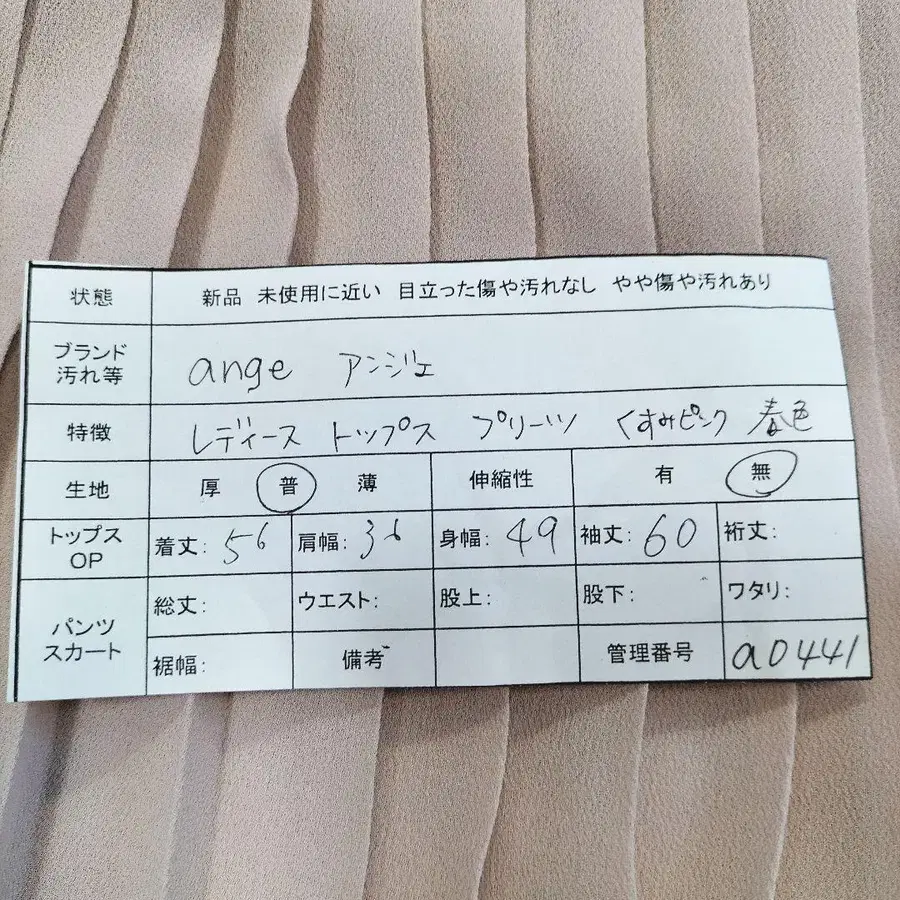 状態 新品 未使用に近い 目立った傷や汚れなし やや傷や汚れあり
ブランド
汚れ等 ange アンジェ
特徴 レディース トップス プリーツ くすみピンク 春色
生地 厚 普 薄 伸縮性 有 無
トップス
OP 着丈: 56 肩幅: 36 身幅: 49 袖丈: 60 裄丈:
パンツ
スカート 総丈: ウエスト: 股上: 股下: ワタリ:
裾幅: 備考 管理番号 a0441